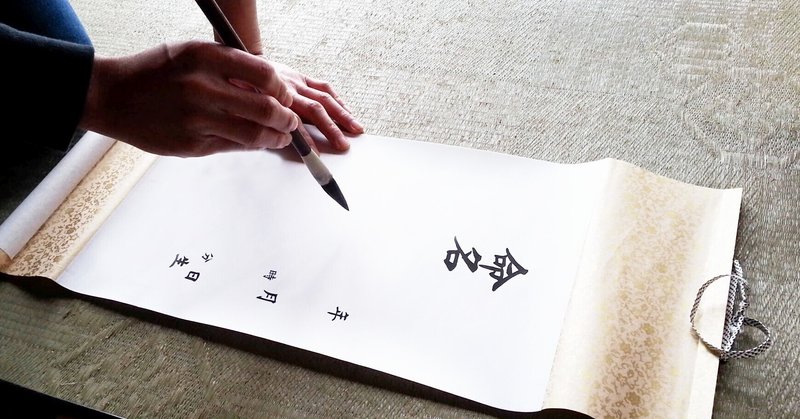 命名
年 月 日
時 分 生